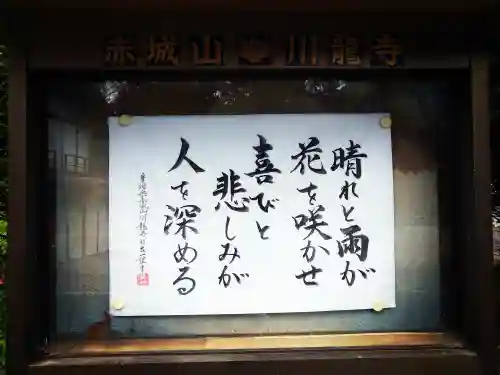 赤城山 川龍寺
晴れと雨が
花を咲かせ
喜びと
悲しみが
人を深める